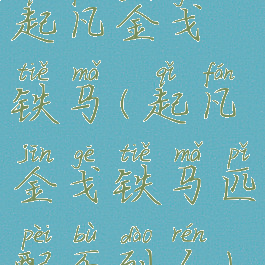 起凡金戈
tiě mǎ qǐ fán
铁马(起凡
jīn gē tiě mǎ pǐ
金戈铁马匹
pèi bù dào rén
配不到人)